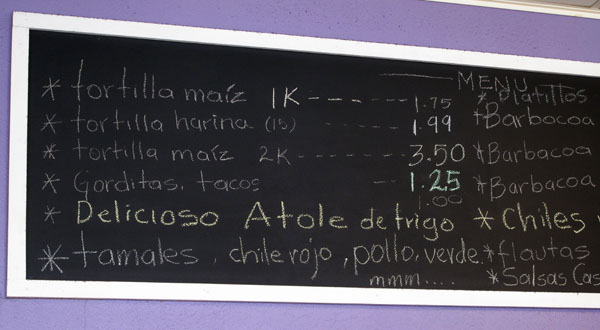 MENU
* tortilla maíz 1K ------- 1.75 * Platillos
* tortilla harina (15) ------ 1.99 * Barbocoa
* tortilla maíz 2K -------- 3.50 * Barbacoa
* Gorditas, tacos --- 1.25 * Barbacoa
1.00
* Delicioso Atole de trigo * Chiles
* tamales, chile rojo, pollo, verde. * flautas
mmm.... * Salsas Cas